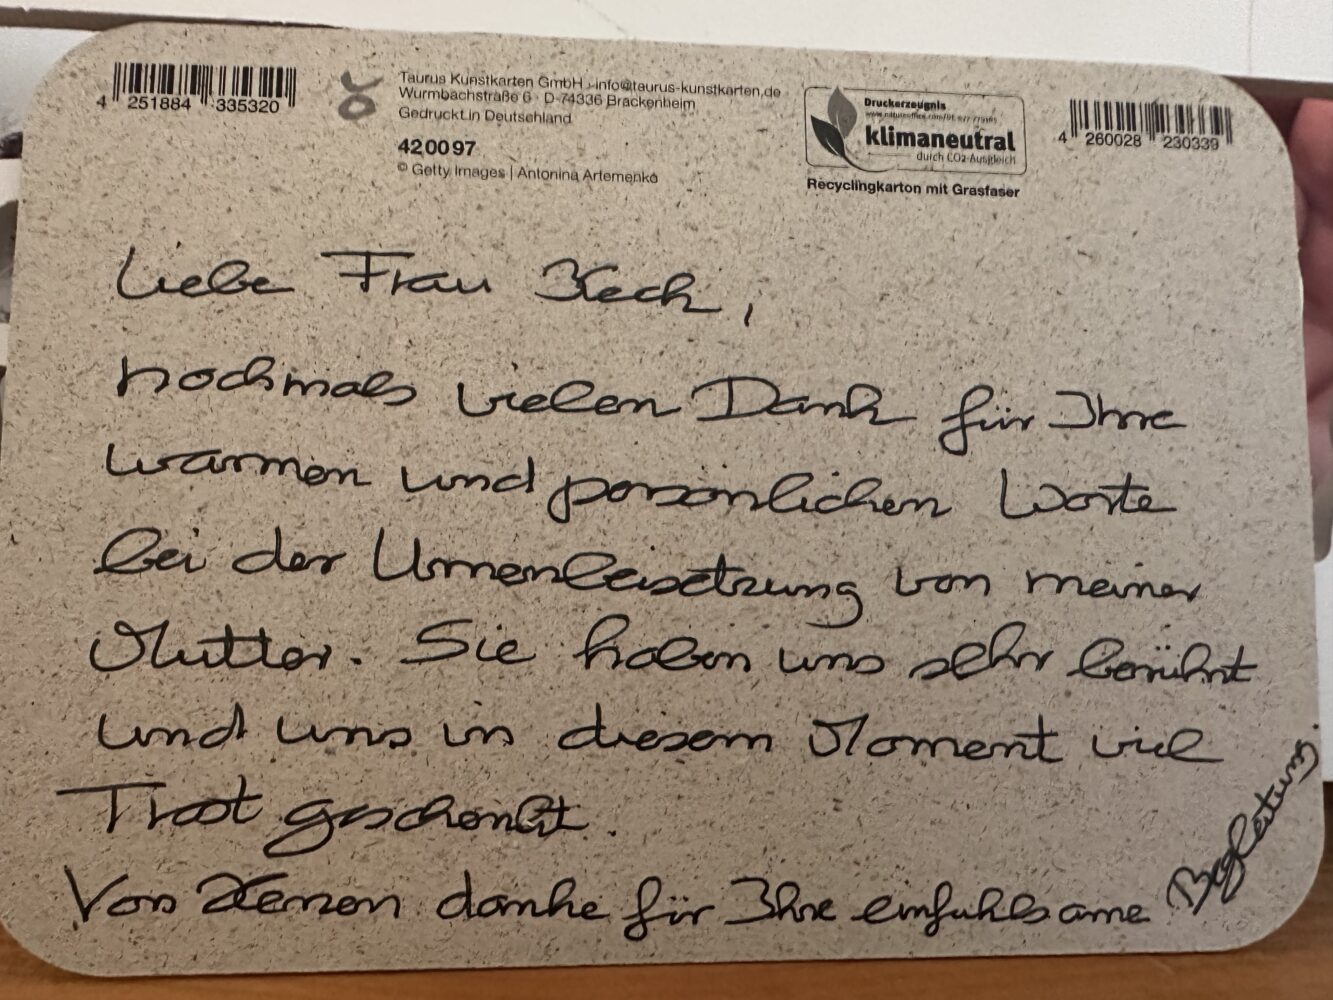 4 251884 335320
Taurus Kunstkarten GmbH · info@taurus-kunstkarten.de
Wurmbachstraße 6 · D-74336 Brackenheim
Gedruckt in Deutschland
420097
© Getty Images | Antonina Artemenko
Druckerzeugnis
klimaneutral
durch CO2-Ausgleich
Recyclingkarton mit Grasfaser
4 260028 230339
Liebe Frau Keck,
nochmals vielen Dank für Ihre
warmen und persönlichen Worte
bei der Urnenbeisetzung von meiner
Mutter. Sie haben uns sehr berührt
und uns in diesem Moment viel
Trost geschenkt.
Von Herzen danke für Ihre einfühlsame
Begleitung.